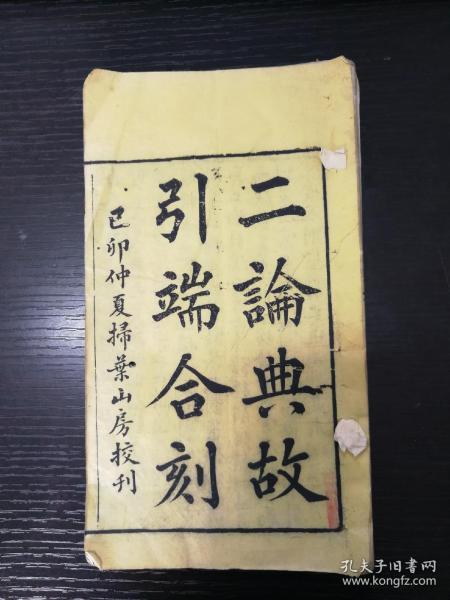 二論典故
引端合刻
己卯仲夏掃葉山房挍刊
孔夫子旧书网
www.kongfz.com